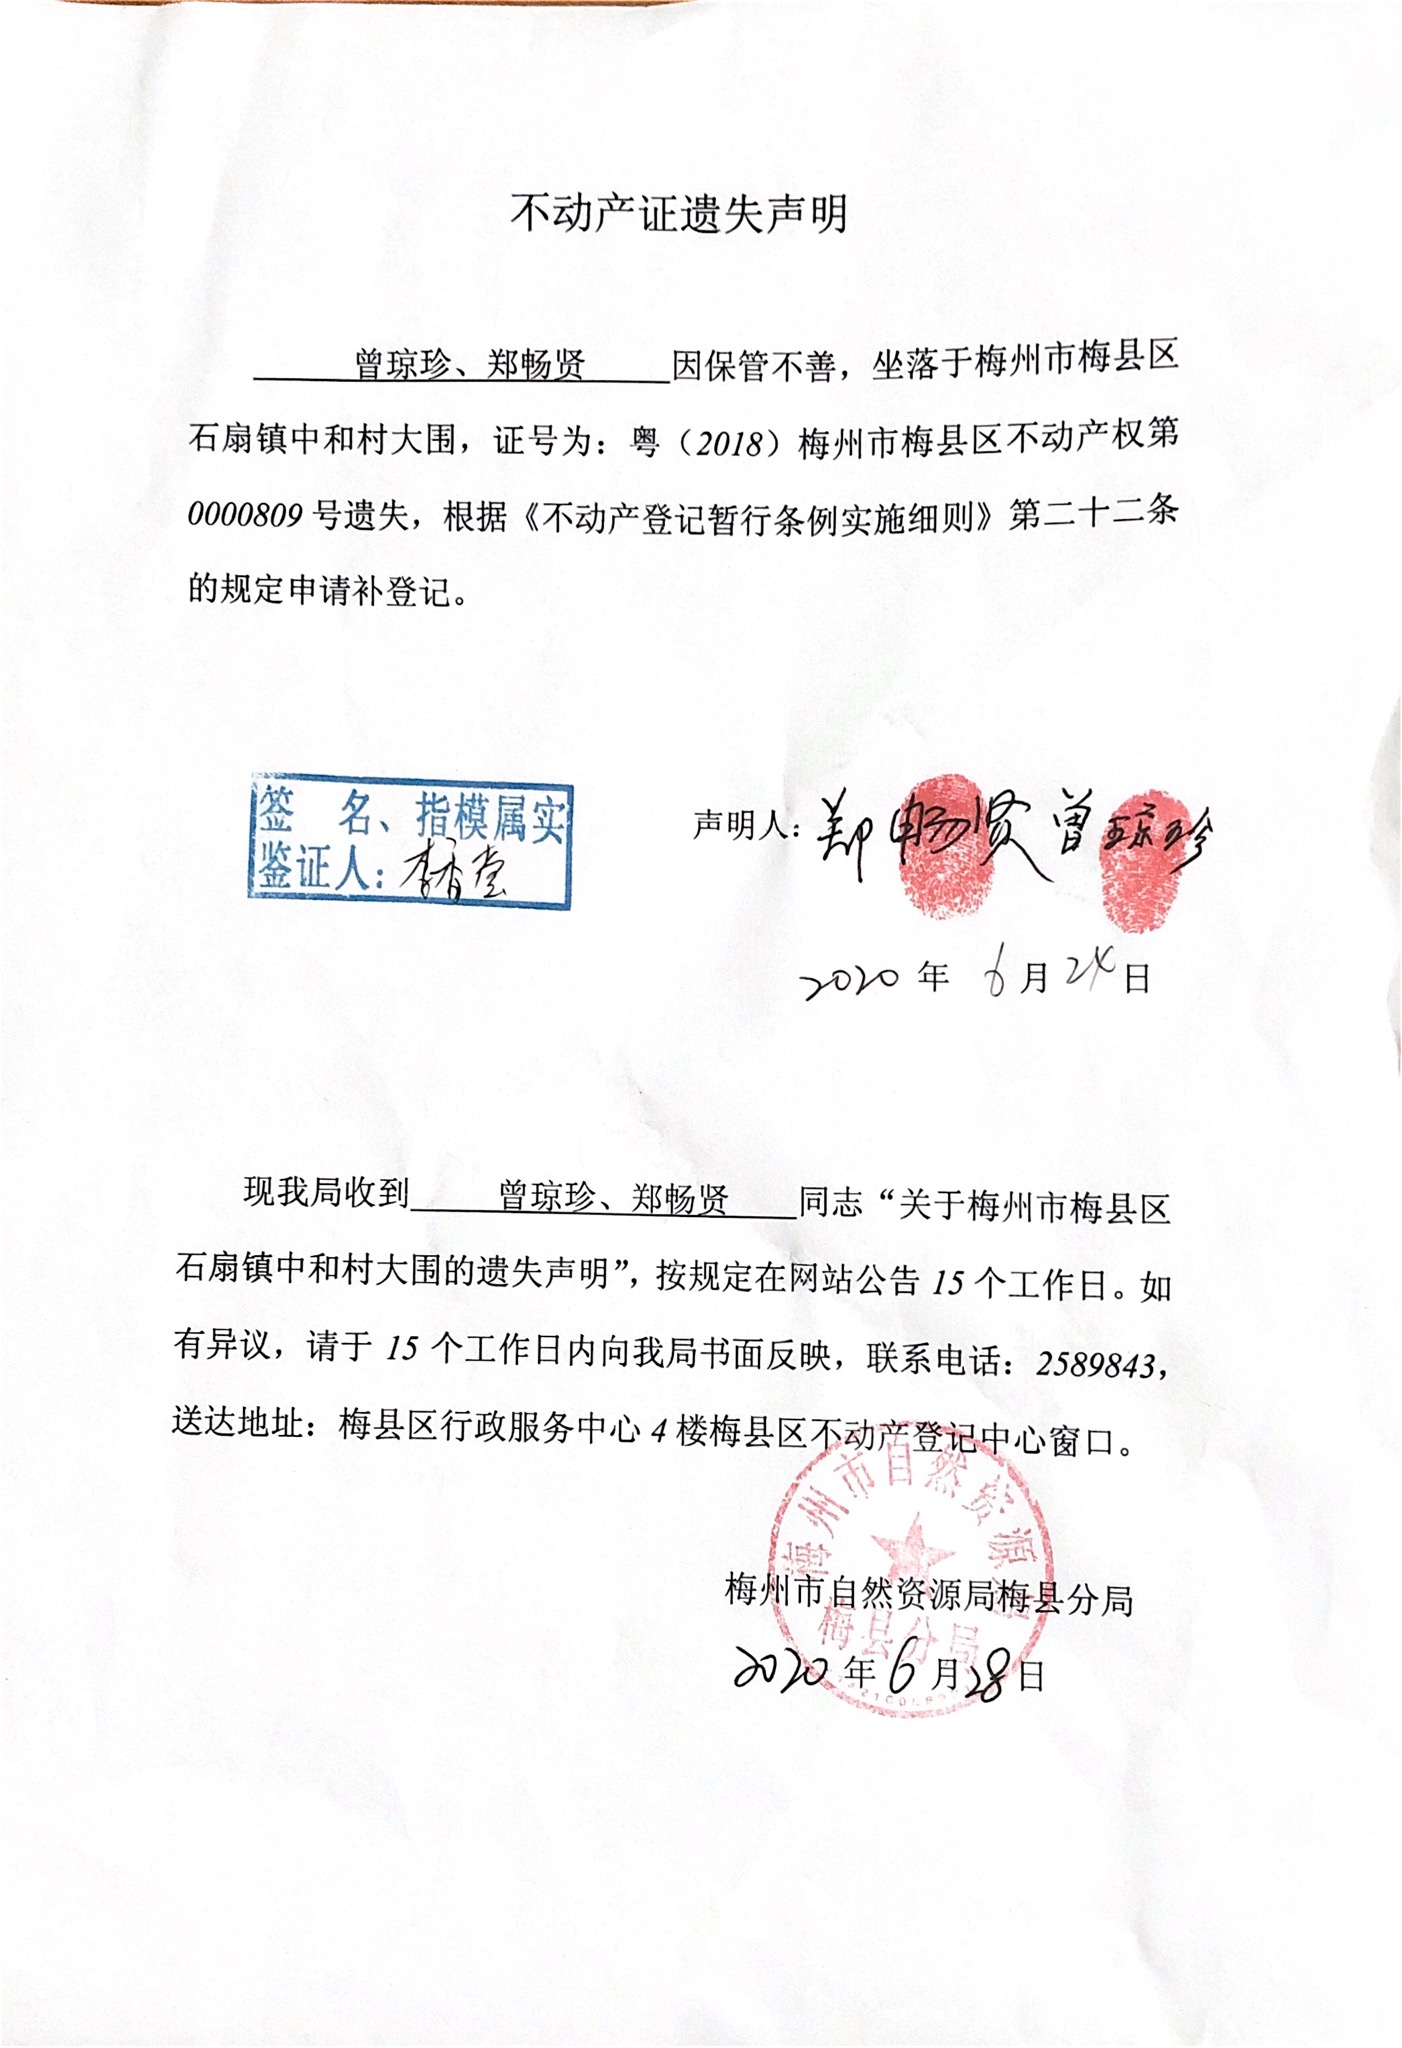 不动产证遗失声明
曾琼珍、郑畅贤因保管不善，坐落于梅州市梅县区
石扇镇中和村大围，证号为：粤（2018）梅州市梅县区不动产权第
0000809号遗失，根据《不动产登记暂行条例实施细则》第二十二条
的规定申请补登记。
签 名、指模属实
鉴证人：李香堂
声明人：郑畅贤 曾琼珍
2020年 6月24日
现我局收到曾琼珍、郑畅贤同志“关于梅州市梅县区
石扇镇中和村大围的遗失声明”，按规定在网站公告15个工作日。如
有异议，请于15个工作日内向我局书面反映，联系电话：2589843，
送达地址：梅县区行政服务中心4楼梅县区不动产登记中心窗口。
梅州市自然资源局
梅县分局
梅州市自然资源局梅县分局
2020年6月28日